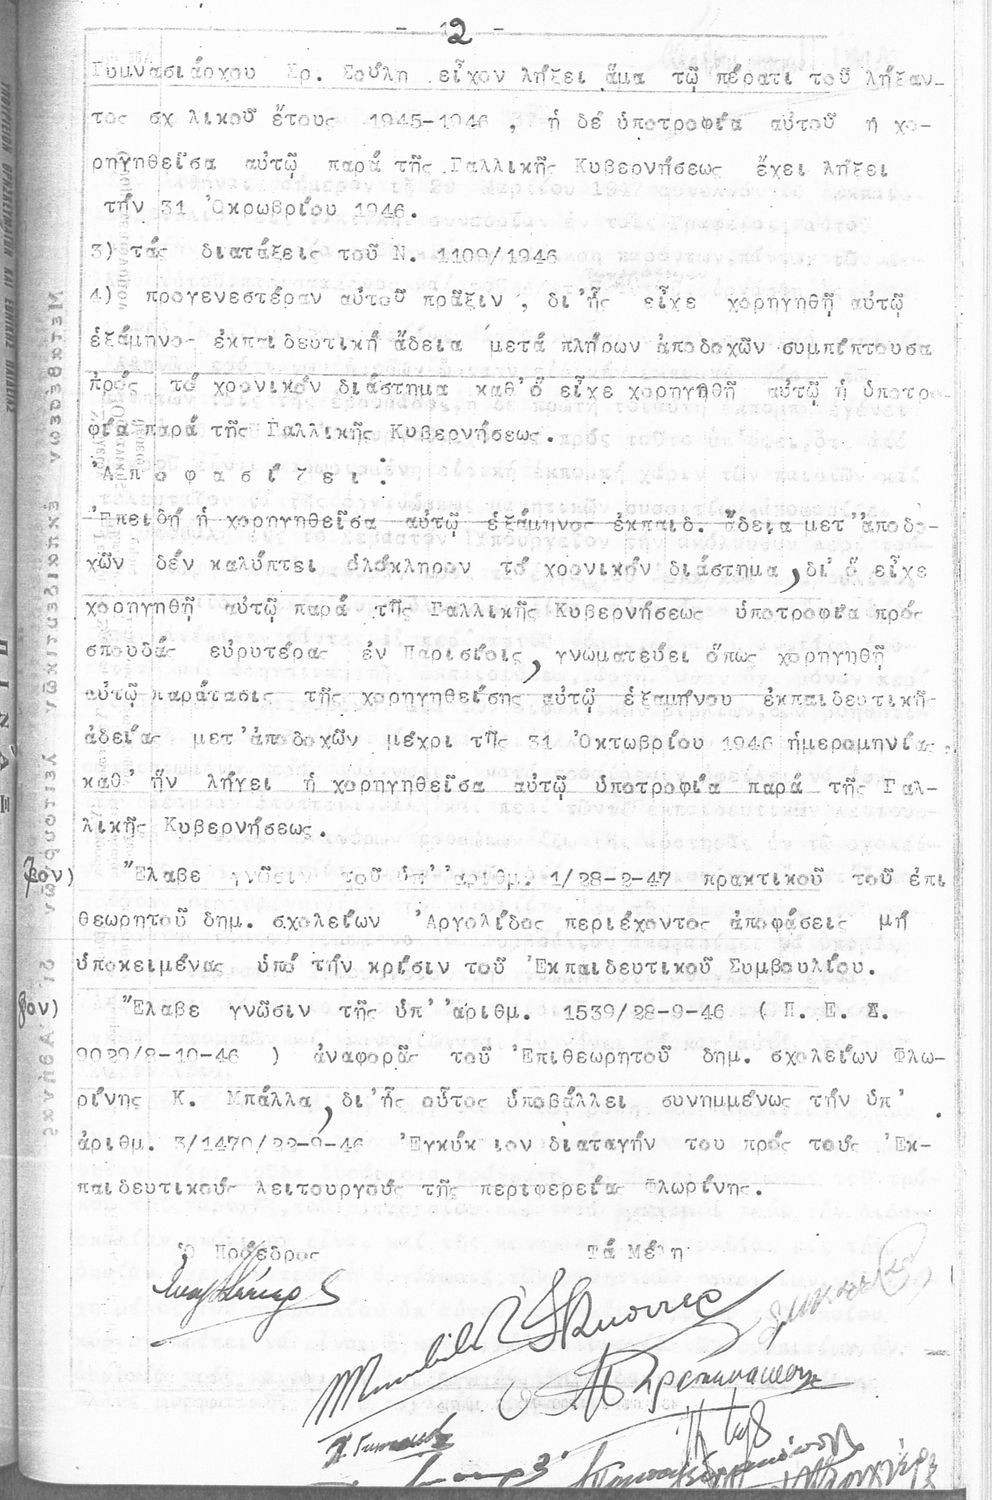 - 2 -
Γυμνασιάρχου Χρ. Σούλη εἶχον λήξει ἅμα τῷ πέρατι τοῦ λήξαν-
τος σχ λικοῦ ἔτους 1945-1946 , ἡ δέ ὑποτροφία αὐτοῦ ἡ χο-
ρηγηθεῖσα αὐτῷ παρά τῆς Γαλλικῆς Κυβερνήσεως ἔχει λήξει
τήν 31 Ὀκρωβρίου 1946.
3) τάς διατάξεις τοῦ Ν. 1109/1946
4) προγενεστέραν αὐτοῦ πρᾶξιν , δι'ἧς εἶχε χορηγηθῆ αὐτῷ
ἑξάμηνος ἐκπαιδευτική ἄδεια μετά πλήρων ἀποδοχῶν συμπίπτουσα
πρός τό χρονικόν διάστημα καθ'ὅ εἶχε χορηγηθῆ αὐτῷ ἡ ὑποτρο-
φία παρά τῆς Γαλλικῆς Κυβερνήσεως.
Ἀ π ο φ α σ ί ζ ε ι :
Ἐπειδή ἡ χορηγηθεῖσα αὐτῷ ἑξάμηνος ἐκπαιδ. ἄδεια μετ''ἀποδο-
χῶν δέν καλύπτει ὁλόκληρον τό χρονικόν διάστημα, δι' ὅ εἶχε
χορηγηθῆ αὐτῷ παρά τῆς Γαλλικῆς Κυβερνήσεως ὑποτροφία πρός
σπουδάς εὐρυτέρας ἐν Παρισίοις, γνωματεύει ὅπως χορηγηθῆ
αὐτῷ παράτασις τῆς χορηγηθείσης αὐτῷ ἑξαμήνου ἐκπαιδευτικῆς
ἀδείας μετ'ἀποδοχῶν μέχρι τῆς 31 Ὀκτωβρίου 1946 ἡμερομηνίας
καθ' ἥν λήγει ἡ χορηγηθεῖσα αὐτῷ ὑποτροφία παρά τῆς Γαλ-
λικῆς Κυβερνήσεως.
7ον) Ἔλαβε γνῶσιν τοῦ ὑπ' ἀριθμ. 1/28-2-47 πρακτικοῦ τοῦ ἐπι
θεωρητοῦ δημ. σχολείων Ἀργολίδος περιέχοντος ἀποφάσεις μή
ὑποκειμένας ὑπό τήν κρίσιν τοῦ Ἐκπαιδευτικοῦ Συμβουλίου.
8ον) Ἔλαβε γνῶσιν τῆς ὑπ' ἀριθμ. 1539/28-9-46 ( Π. Ε. Σ.
9029/8-10-46 ) ἀναφορᾶς τοῦ Ἐπιθεωρητοῦ δημ. σχολείων Φλω-
ρίνης Κ. Μπάλλα, δι'ἧς οὗτος ὑποβάλλει συνημμένως τήν ὑπ'
ἀριθμ. 3/1470/22-9-46 Ἐγκύκ ιον διαταγήν του πρός τούς Ἐκ-
παιδευτικούς λειτουργούς τῆς περιφερείας Φλωρίνης.
Ὁ Πρόεδρος Τά Μέλη